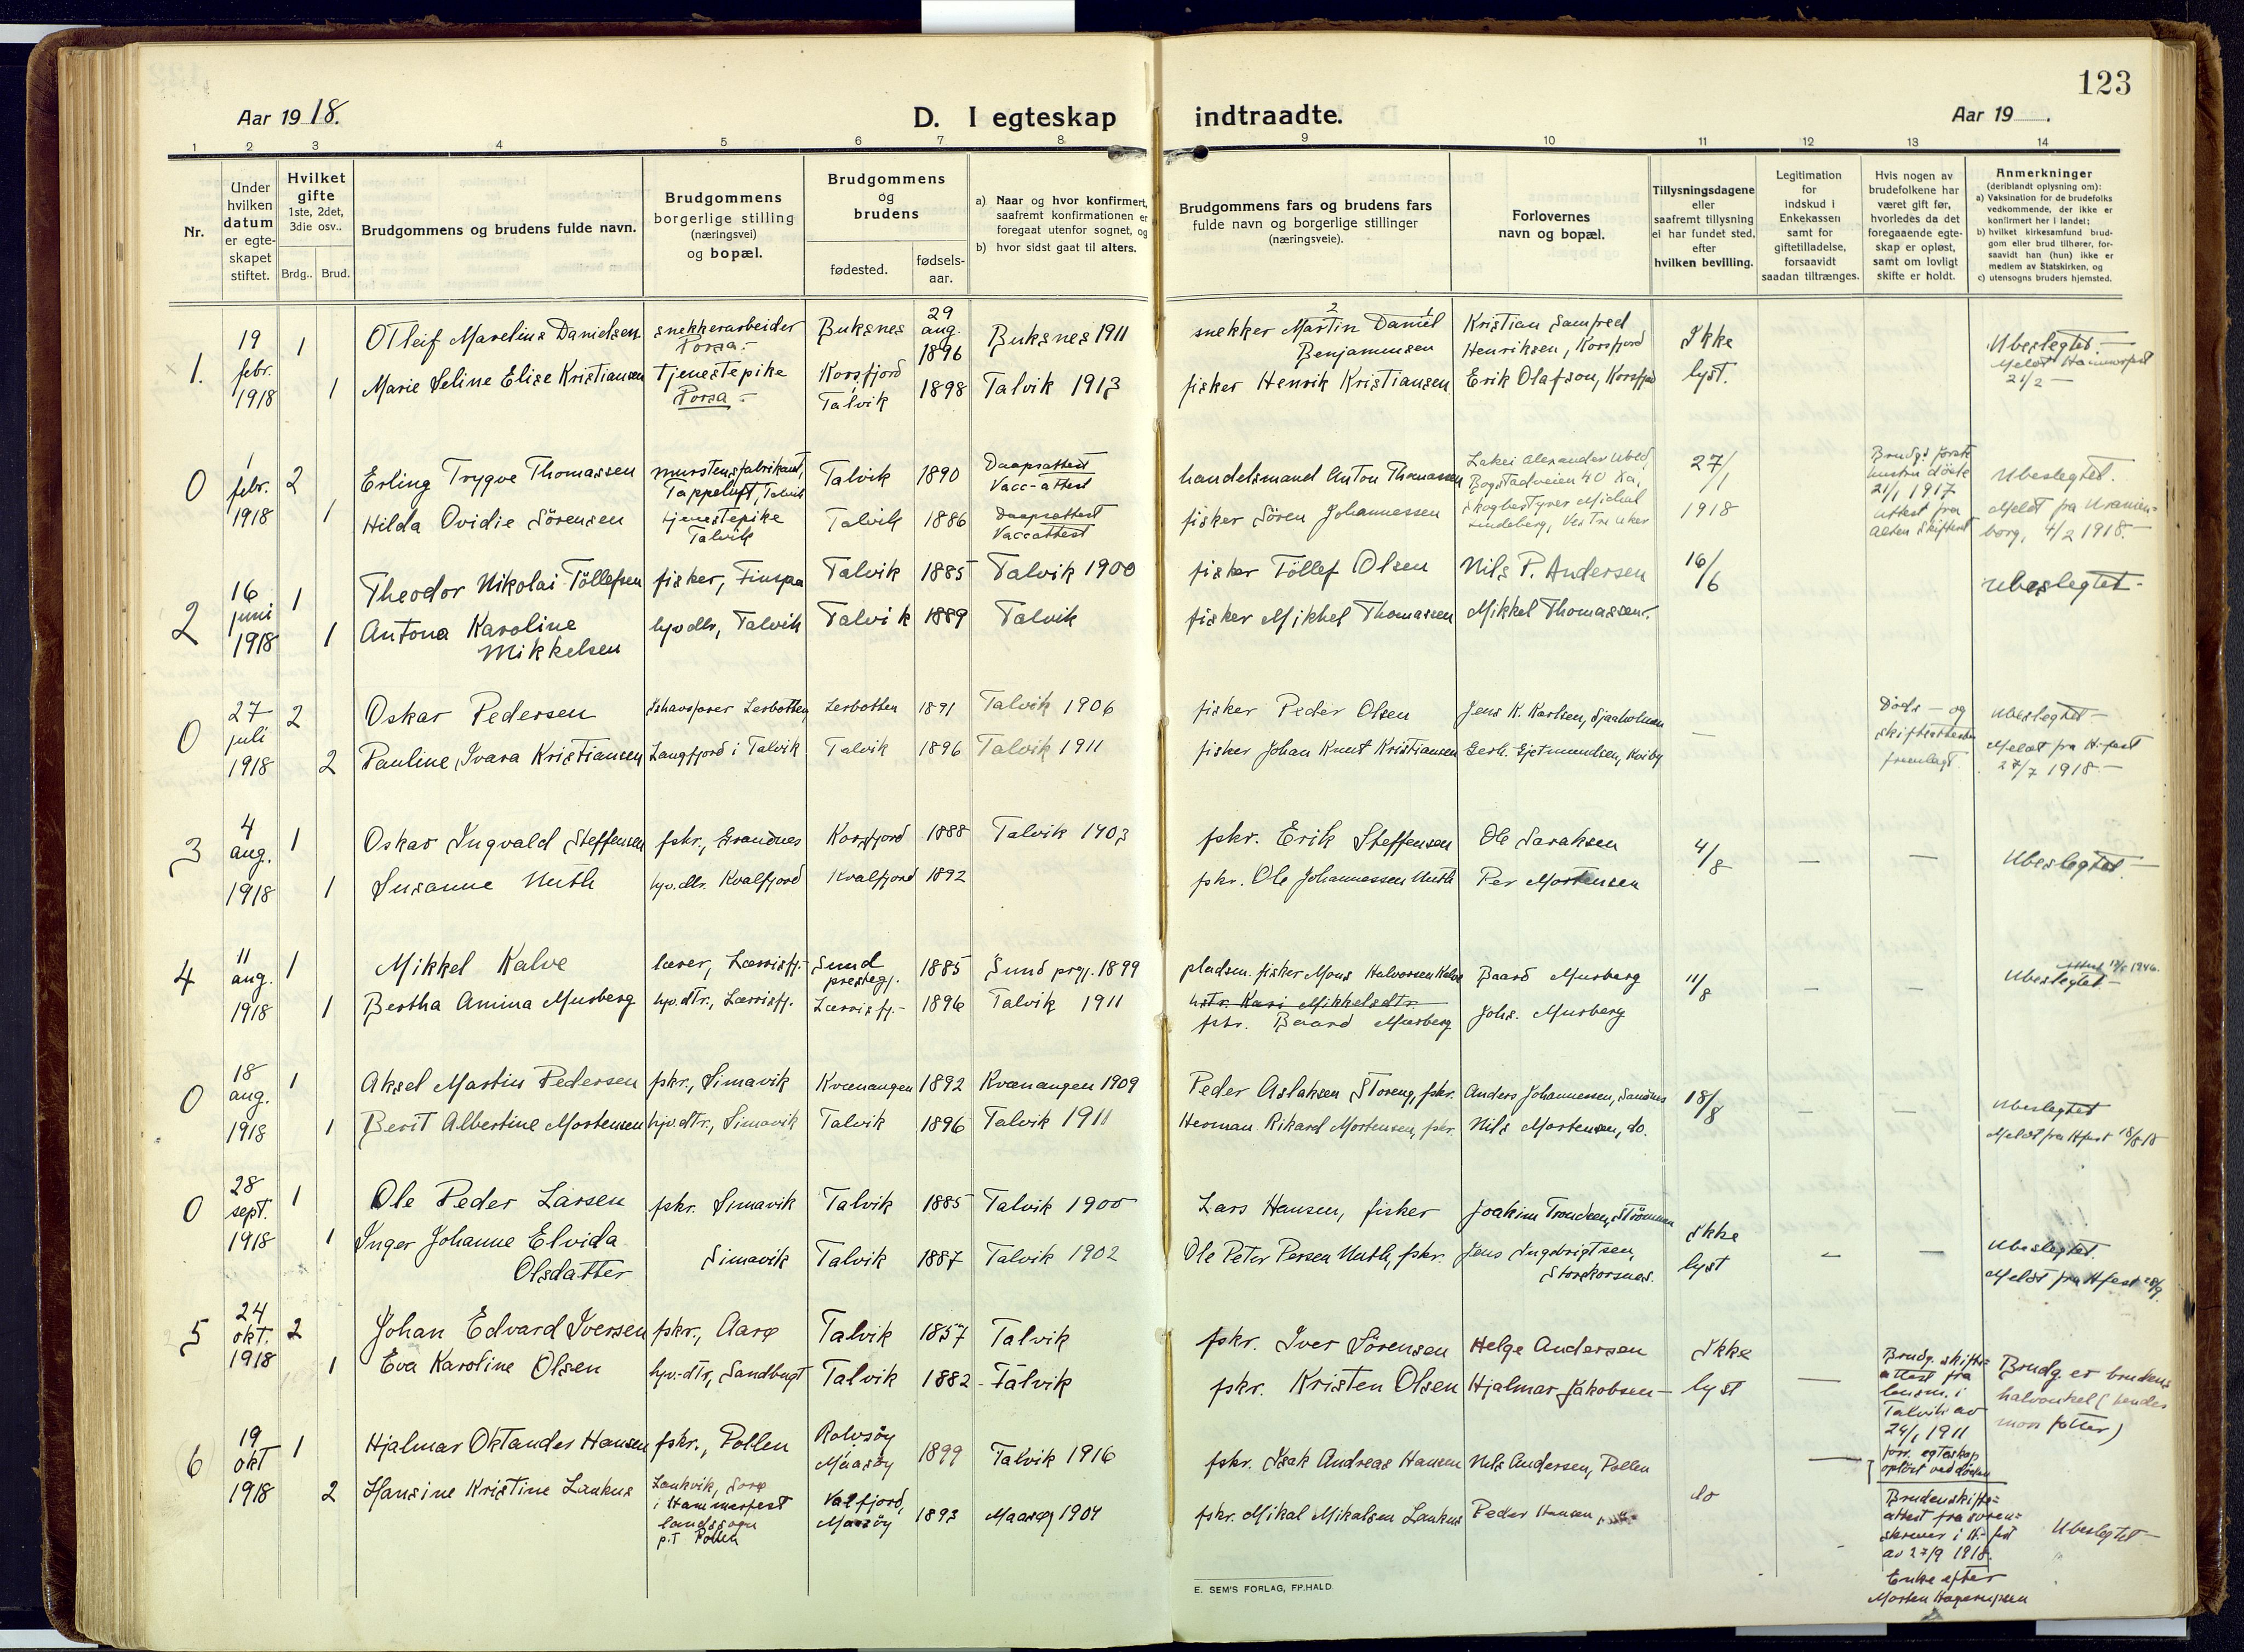 123
Aar 1918.
D. I egteskap indtraadte.
Aar 19 .
1 2 3 4 5 6 7 8 9 10 11 12 13 14
Nr.
Under hvilken datum er egteskapet stiftet.
Hvilket gifte 1ste, 2det, 3die osv..
Brdg.. Brud.
Brudgommens og brudens fulde navn.
Brudgommens borgerlige stilling (næringsvei) og bopæl.
Brudgommens og brudens
fødested. fødselsaar.
a) Naar og hvor konfirmert, saafremt konfirmationen er foregaat utenfor sognet, og
b) hvor sidst gaat til alters.
Brudgommens fars og brudens fars fulde navn og borgerlige stillinger (næringsveie).
Forlovernes navn og bopæl.
Tillysningsdagene eller saafremt tillysning ei har fundet sted, efter hvilken bevilling.
Legitimation for indskud i Enkekassen samt for giftetilladelse, forsaavidt saadan tiltrænges.
Hvis nogen av brudefolkene har været gift før, hvorledes da det foregaaende egteskap er opløst, samt om lovligt skifte er holdt.
Anmerkninger (deriblandt oplysning om):
a) Vaksination for de brudefolks vedkommende, der ikke er konfirmert her i landet;
b) hvilket kirkesamfund brudgom eller brud tilhører, forsaavidt han (hun) ikke er medlem av Statskirken, og
c) utensogns bruders hjemsted.
1. 19 febr. 1918 1 OTleif Marelius Danielsen snekkerarbeider Porsa Buksnes 29 aug. 1896 Buksnes 1911 snekker Martin Daniel Benjaminsen Kristian Samfred Henriksen, Korsfjord Ikke lyst. Ubeslegtet
1 Marie Seline Elise Kristiansen Tjenestepike Porsa Korsfjord Talvik 1898 Talvik 1913 fisker Henrik Kristiansen Erik Olafson, Korsfjord Meldt Hammerfest 21/2
0 1 febr. 1918 2 Erling Trygve Thomassen murstensfabrikant, Tappeluft, Talvik Talvik 1890 Daapsattest Vacc-attest handelsmand Anton Thomassen Bogstadveien 40 Ka, 27/1 1918 Brudg. første hustru døde 21/1 1917 Attest fra Alten Skifteret Ubeslegtet.
1 Hilda Ovidie Sörensen tjenestepike Talvik Talvik 1886 Daapsattest Vaccattest fisker Sören Johannessen skogbestyrer Michal Lindeberg, Vestre Aker Meldt fra Uranienborg, 4/2 1918.
2 16 juni 1918 1 Theodor Nikolai Töllefsen fisker, Finspa Talvik 1885 Talvik 1900 fisker Töllef Olsen Nils P. Andersen 16/6 Ubeslegtet
1 Antona Karoline Mikkelsen hjv dtr, Talvik Talvik 1889 Talvik fisker Mikkel Thomassen Mikkel Thomassen
0 27 juli 1918 2 Oskar Pedersen Ishavsfarer Lerbotten Lerbotten 1891 Talvik 1906 fisker Peder Olsen Jens K. Karlsen, Sjaaholmen — Døds- og skifteattester fremlagt Ubeslegtet
2 Pauline Ivara Kristiansen Langfjord i Talvik Talvik 1896 Talvik 1911 fisker Johan Knut Kristiansen Gerh. Gjetmundsen, Kviby Meldt fra H-fest 27/7 1918
3 4 aug. 1918 1 Oskar Ingvald Steffensen fskr., Grandnes Korsfjord 1888 Talvik 1903 fskr. Erik Steffensen Ole Saraksen 4/8 — — Ubeslegtet
1 Susanne Muth hjv. dtr. Kvalfjord Kvalfjord 1892 fskr. Ole Johannessen Muth Per Mortensen
4 11 aug. 1918 1 Mikkel Kalve lærer, Lærrisfj. Sund prestegj. 1885 Sund prgj. 1899 pladsm. fisker Mons Halvorsen Kalve Baard Murberg 11/8 — — Ubeslegtet
hstr. Kari Mikkelsdtr.
1 Bertha Amina Murberg hjv. dtr., Lærrisfj. Lærrisfj. 1896 Talvik 1911 fskr. Baard Murberg Johs. Murberg
0 18 aug. 1918 1 Aksel Martin Pedersen fskr., Simavik Kvænangen 1892 Kvænangen 1909 Peder Aslaksen Storeng, fskr. Anders Johannessen, Sandnes 18/8 — — Ubeslegtet
1 Berit Albertine Mortensen hjv. dtr., Simavik Talvik 1896 Talvik 1911 Herman Rikard Mortensen, fskr. Nils Mortensen, do. Meldt fra Hfest 18/8 18
0 28 sept. 1918 1 Ole Peder Larsen fskr. Simavik Talvik 1885 Talvik 1900 Lars Hansen, fisker Joakim Trondsen, Strømmen Ikke lyst — — Ubeslegtet
1 Inger Johanne Elvida Olsdatter Simavik Talvik 1887 Talvik 1902 Ole Peter Persen Muth, fskr. Jens Ingebrigtsen, Storekorsnes. Meldt fra Hfest 28/9.
5 24 okt. 1918 2 Johan Edvard Iversen fskr., Aarø Talvik 1857 Talvik fskr. Iver Sörensen Helge Andersen Ikke lyst — Brudg. skifteattest fra lensm. i Talvik av 24/1 1911 forr. egteskap opløst ved døden Brudg. er brudens halvonkel (hendes mors fetter)
1 Eva Karoline Olsen hjv.-dtr, Sandbugt Talvik 1882 Talvik fskr. Kristen Olsen Hjalmar Jakobsen
6 19 okt 1918 1 Hjalmar Oktandes Hansen fskr., Pollen Rolvsøy Maasøy 1899 Talvik 1916 fskr. Isak Andreas Hansen Nils Andersen, Pollen do —
2 Hansine Kristine Lankus Lankvik, Sørø i Hammerfest landssogn p.t Pollen Valfjord, Maasøy 1893 Maasøy 1904 fskr. Mikal Mikalsen Lankus Peder Hansen Brudens skifteattest fra sorenskriver i H-fest av 27/9 1918. Enke efter Morten Ubeslegtet
E. SEM'S FORLAG, FR.HALD